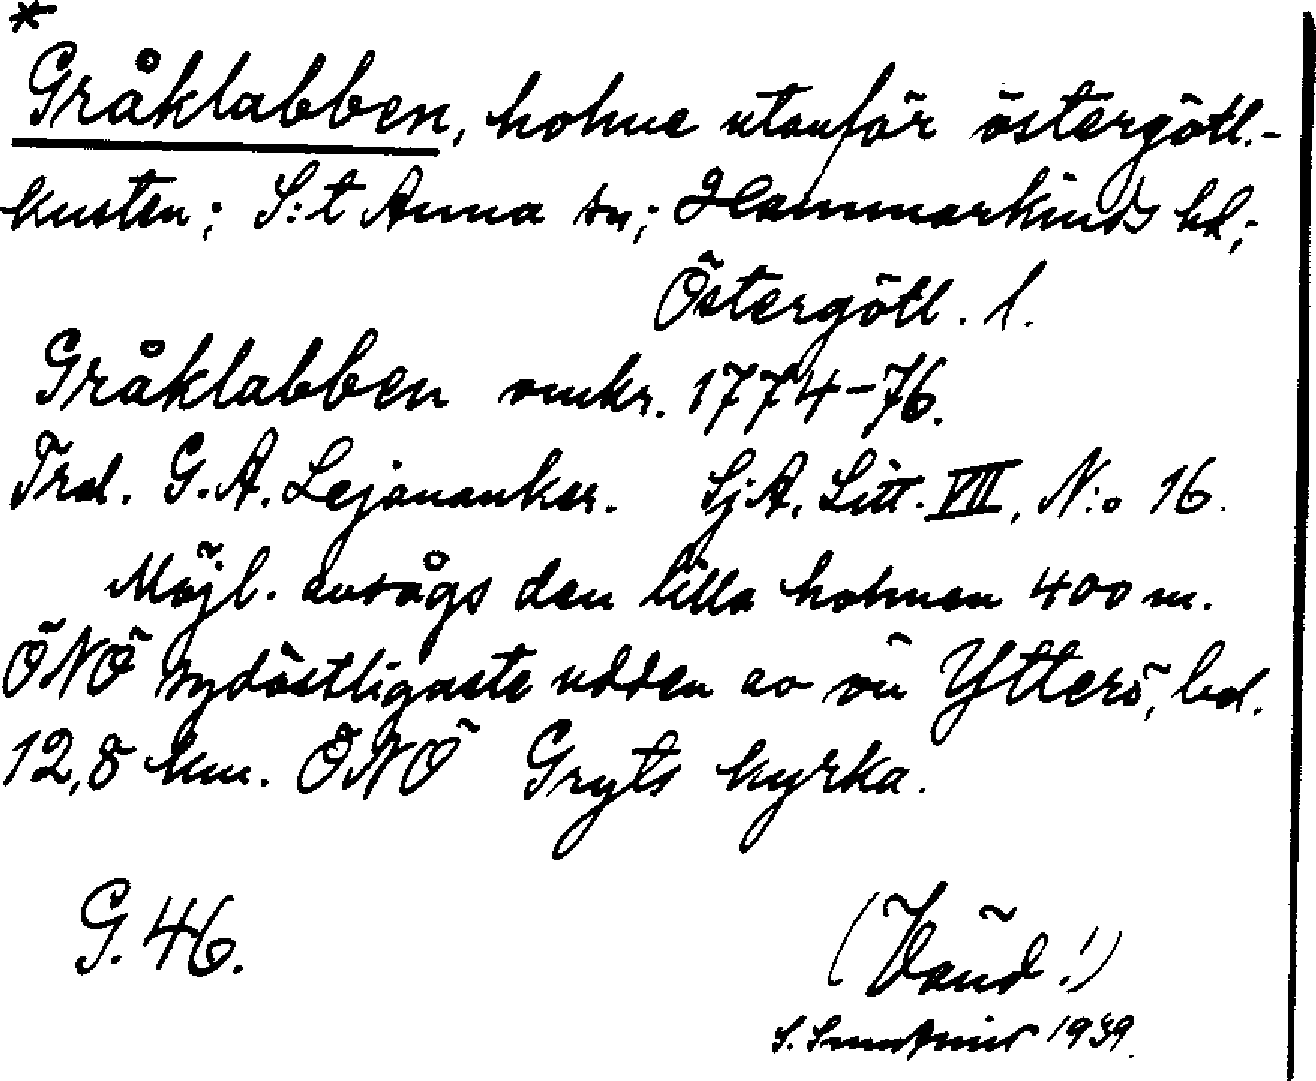 *
Gråklabben, holme utanför östergötl.-
kusten; S:t Anna sn; Hammarkinds hd;
Östergötl. l.
Gråklabben omkr. 1774-76.
Trol. G. A. Lejonanker. SjA. Litt. VIII, N:o 16.
Möjl. avsågs den lilla holmen 400 m.
ÖNÖ sydöstligaste udden av ön Ytterö, bel.
12,8 km. ÖNÖ Gryts kyrka.
G. 46.
(Vänd!)
S. 1939.